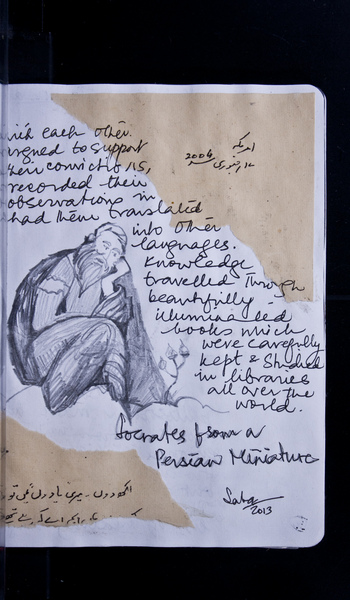 with each other.
urgned to support
their convictions,
recorded their
observations in
had them translated
into other
languages.
Knowledge
travelled Through
beautifully
illuminated
books which
were carefully
kept & Studied
in libraries
all over the
world.
امریکہ
2006
جنوری
Socrates from a
Persian Miniature
Saba
2013